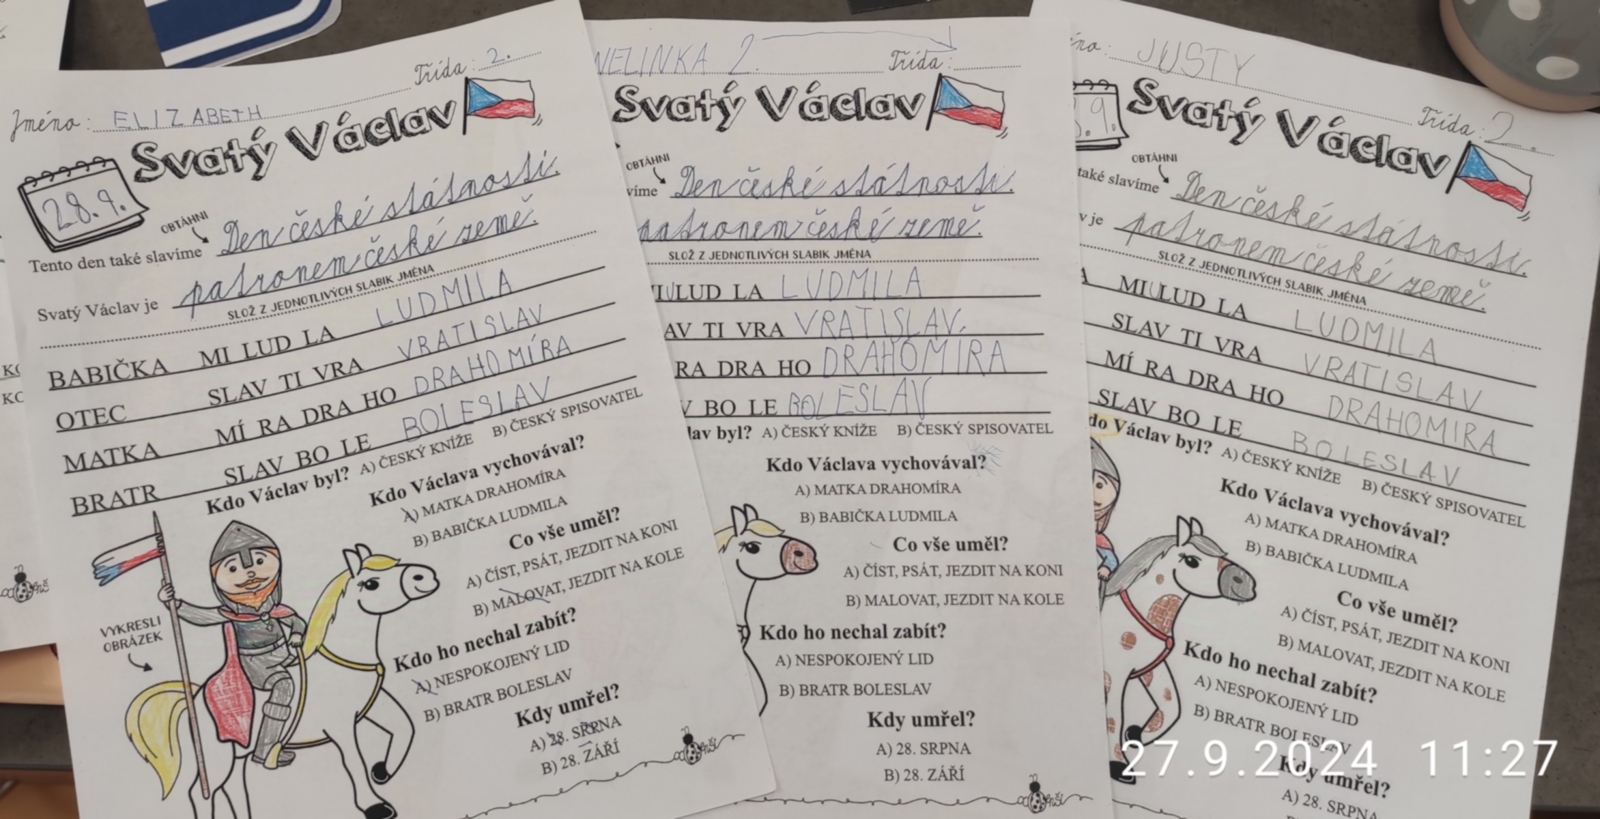 Jméno: ELIZABETH Třída: 2.
Svatý Václav
28.9.
OBTÁHNI
Tento den také slavíme Den české státnosti.
Svatý Václav je patronem české země.
SLOŽ Z JEDNOTLIVÝCH SLABIK JMÉNA
BABIČKA MI LUD LA LUDMILA
OTEC SLAV TI VRA VRATISLAV
MATKA MÍ RA DRA HO DRAHOMÍRA
BRATR SLAV BO LE BOLESLAV
Kdo Václav byl? A) ČESKÝ KNÍŽE B) ČESKÝ SPISOVATEL
Kdo Václava vychovával?
A) MATKA DRAHOMÍRA
B) BABIČKA LUDMILA
Co vše uměl?
A) ČÍST, PSÁT, JEZDIT NA KONI
B) MALOVAT, JEZDIT NA KOLE
VYKRESLI
OBRÁZEK
Kdo ho nechal zabít?
A) NESPOKOJENÝ LID
B) BRATR BOLESLAV
Kdy umřel?
A) 28. SRPNA
B) 28. ZÁŘÍ
NELINKA 2. Třída:
Svatý Václav
OBTÁHNI
víme Den české státnosti.
patronem české země.
SLOŽ Z JEDNOTLIVÝCH SLABIK JMÉNA
LUD LA LUDMILA
AV TI VRA VRATISLAV
RA DRA HO DRAHOMIRA
V BO LE BOLESLAV
lav byl? A) ČESKÝ KNÍŽE B) ČESKÝ SPISOVATEL
Kdo Václava vychovával?
A) MATKA DRAHOMÍRA
B) BABIČKA LUDMILA
Co vše uměl?
A) ČÍST, PSÁT, JEZDIT NA KONI
B) MALOVAT, JEZDIT NA KOLE
Kdo ho nechal zabít?
A) NESPOKOJENÝ LID
B) BRATR BOLESLAV
Kdy umřel?
A) 28. SRPNA
B) 28. ZÁŘÍ
no: JUSTY
Třída: 2.
Svatý Václav
.9.
OBTÁHNI
také slavíme Den české státnosti.
v je patronem české země.
SLOŽ Z JEDNOTLIVÝCH SLABIK JMÉNA
A MI LUD LA LUDMILA
SLAV TI VRA VRATISLAV
MÍ RA DRA HO DRAHOMIRA
SLAV BO LE BOLESLAV
do Václav byl? A) ČESKÝ KNÍŽE B) ČESKÝ SPISOVATEL
Kdo Václava vychovával?
A) MATKA DRAHOMÍRA
B) BABIČKA LUDMILA
Co vše uměl?
A) ČÍST, PSÁT, JEZDIT NA KONI
B) MALOVAT, JEZDIT NA KOLE
Kdo ho nechal zabít?
A) NESPOKOJENÝ LID
B) BRATR BOLESLAV
Kdy umřel?
A) 28. SRPNA
27.9.2024 11:27